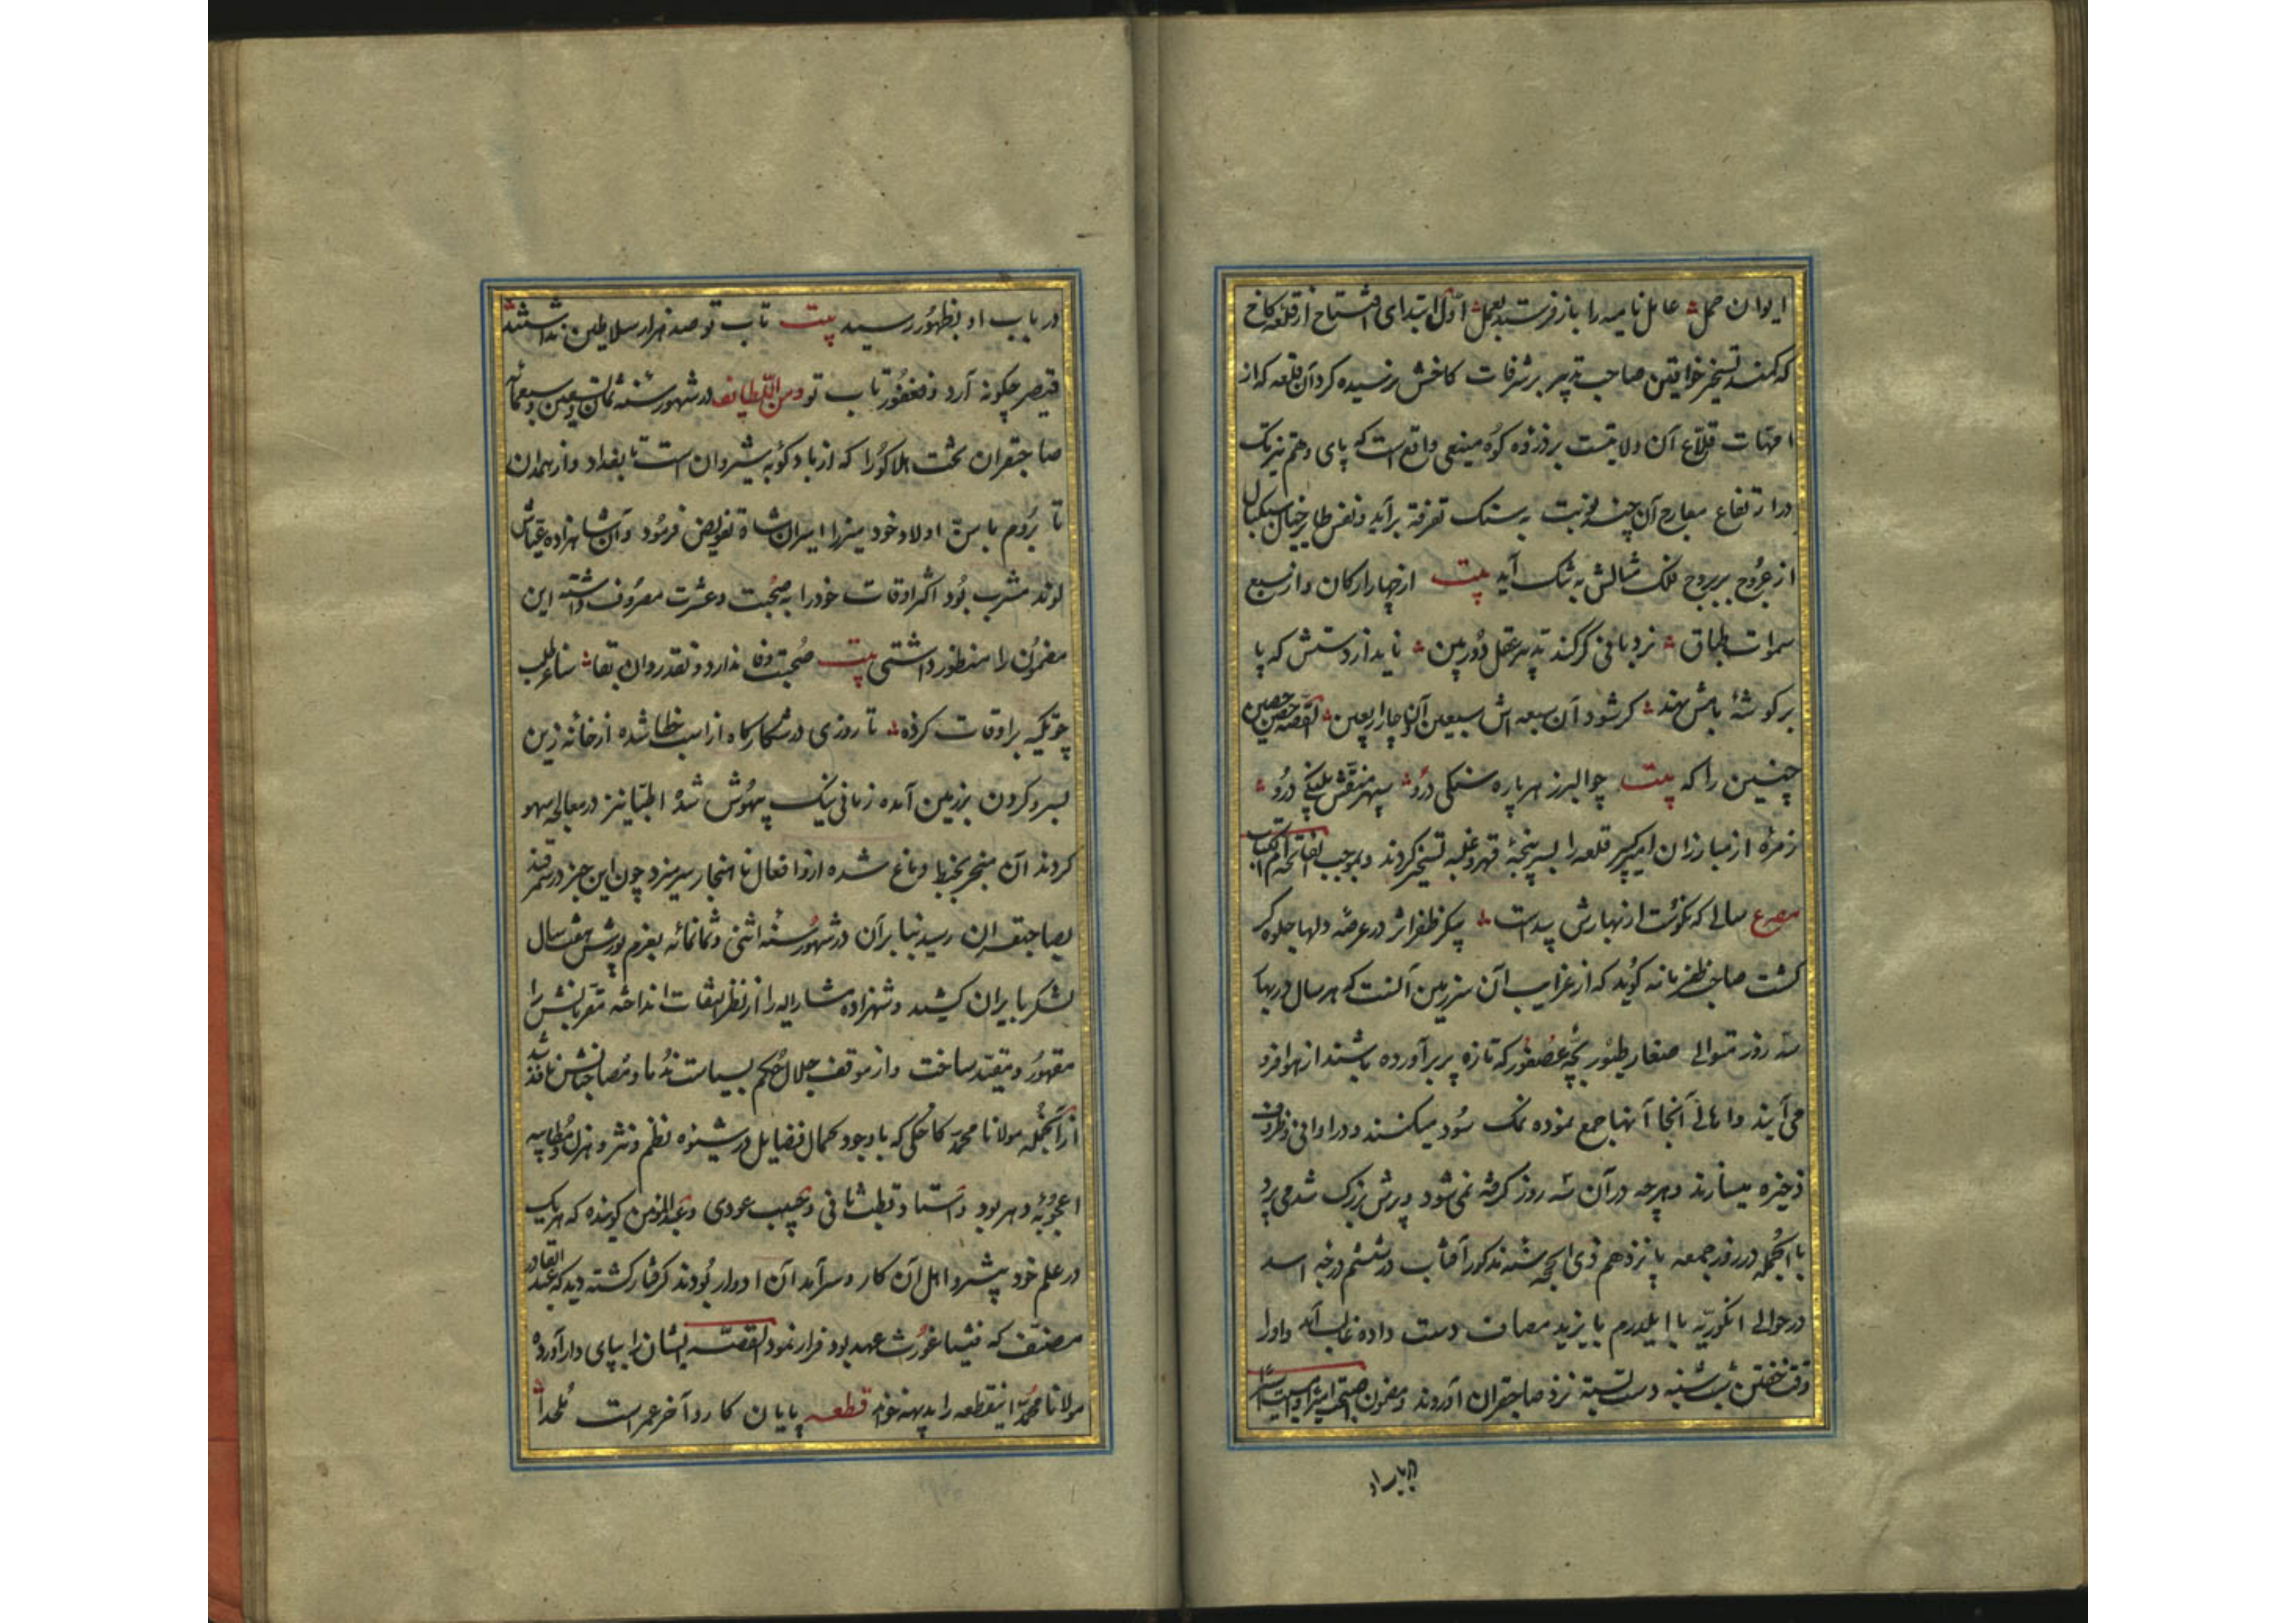 ایوان حمل عامل نامیه را باز فرستد بعمل اول ابتدای افتتاح از قلعه کاخ
که کمند تسخیر خواقین صاحب تدبیر بر شرفات کاخش نرسیده کرد آن قلعه که از
امهات قلاع آن ولایتست بر ذروه کوه منیعی واقع است که پای وهم تیز تک
در ارتفاع معارج آن چند نوبت به سنک تفرقه برآید و نفس طایر خیال سبکبال
از عروج بر بروج فلک مثالش به تنک آید بیت از چهار ارکان و از سبع
سموات طباق نردبانی کر کند تدبیر عقل دوربین ناید از دستش که پا
بر کوشه بامش نهد کر شود آن سبعه اش سبعین آن چار اربعین القصه حصن حصین
چنین را که بیت چو البرز هر پاره سنکی درو سپهر منقش پلنکی درو
زمره از مبارزان امیر کبیر قلعه را بسر پنجه قهر و غلبه تسخیر کردند و بموجب الفاتحه ام الکتاب
مصرع سالی که نکوست از بهارش پیداست پیکر ظفر اثر در عرصه دلها جلوه کر
کشت صاحب ظفرنامه کوید که از غرایب آن سرزمین آنست که هر سال در بهار
سه روز متوالی صغار طیور بچه عصفور که تازه پر برآورده باشند از هوا فرود
می آیند و اهالی آنجا آنها جمع نموده نمک سود میکنند و در اوانی و ظروف
ذخیره میسازند و هر چه در آن سه روز کرفته نمی شود پرش بزرک شده می پرد
بالجمله در روز جمعه پانزدهم ذی الحجه سنه مذکور آفتاب در ششم درجه اسد
در حوالی انکوریه با ایلدرم بایزید مصاف دست داده غالب آمد و او را
وقت خفتن شب شنبه دست بسته نزد صاحبقران آوردند و مضمون
در باب او بظهور رسید بیت تاب تو صد هزار سلاطین نداشتند
قیصر چکونه آرد و فغفور تاب تو و من اللطایف در شهور سنه ثمان و تسعین و سبعمائه
صاحبقران تخت هلاکو را که از بادکوبه شیروان است تا بغداد و از همدان
تا بروم با سن اولاد خود میرزا میران شاه تفویض فرمود و آن شاهزاده عیاش
لوند مشرب بود اکثر اوقات خود را به صحبت و عشرت مصروف داشته این
مضمون را منظور داشتی بیت صحبت وفا ندارد و نقد روان بقا
چو تکیه بر اوقات کرده تا روزی در شکارکاه از اسب خطا شده از خانه زین
بسر و کردن بزمین آمده زمانی نیک بیهوش شد اطبا نیز در معالجه سهو
کردند آن منجر بخبط دماغ شده ازو افعال ناهنجار سر میزد چون این خبر در سمرقند
بصاحبقران رسید بنا بر آن در شهور سنه اثنی و ثمانمائه بعزم یورش هفت سال
لشکر بایران کشید و شهزاده مشارالیه را از نظر التفات انداخته مقربانش را
مقهور و مقید ساخت و از موقف جلال حکم بسیاست ندما و مصاحبانش نافذ شد
از آنجمله مولانا محمد کاخکی که با وجود کمال فضایل در شیوه نظم و نثر و هزل و مطایبه
اعجوبه دهر بود و استاد قطب نائی و حبیب عودی و عبدالمومن کوینده که هر یک
در علم خود پیشرو اهل آن کار و سرآمد آن ادوار بودند کرفتار کشته عبدالقادر
مصنف که فیثاغورث عهد بود فرار نمود القصه ایشان را بپای دار آورده
مولانا محمد اینقطعه را بدیهه خواند قطعه پایان کار و آخر عمرست ملحدا